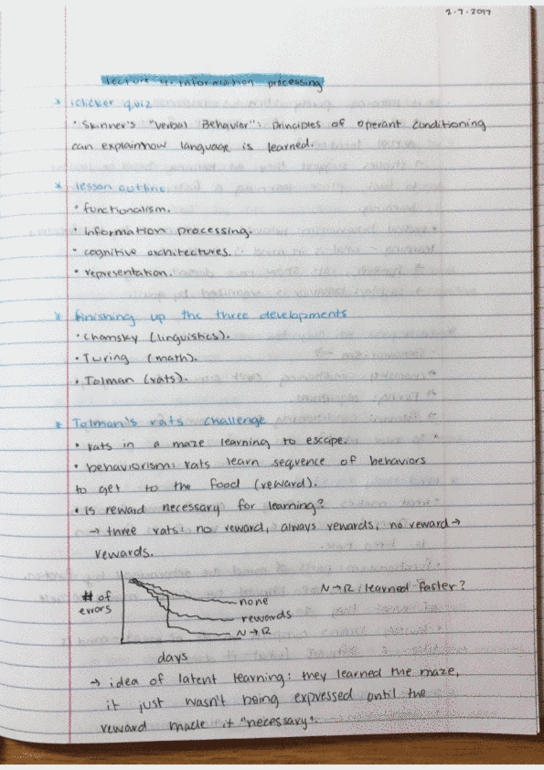 2-7-2017
lecture 4: information processing
* iclicker quiz
• Skinner's "Verbal Behavior": principles of operant conditioning
can explain how language is learned.
* lesson outline
• functionalism.
• information processing.
• cognitive architectures.
• representation.
* finishing up the three developments
• Chomsky (linguistics).
• Turing (math).
• Tolman (rats).
* Tolman's rats challenge
• rats in a maze learning to escape.
• behaviorism: rats learn sequence of behaviors
to get to the food (reward).
• Is reward necessary for learning?
→ three rats: no reward, always rewards, no reward →
rewards.
# of
errors
none
rewards
N→R
N→R: learned faster?
days
→ idea of latent learning: they learned the maze,
it just wasn't being expressed until the
reward made it "necessary".